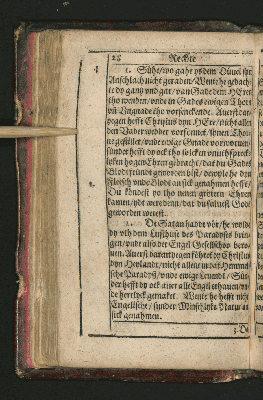 28 Rechte
1. Sühe/wo gahr ys dem Düuel syn
Anschlach nicht geraden/Wente he gedacht
te dy gantz vnd gar/van Gade dem HEren
tho wenden/vnde in Gades ewigen Thorn
vñ Vngnade tho vorsencken. Auerst dar
yegen hefft Christus dyn HErr/nicht allein
den Vader wedder vorsönet/synen Thorn
ne gestillet/vnde ewige Gnade vorworuen/
sünder hefft dy ock tho solcken
lyken hogen Ehren gebracht/dat du Gades
Blodtfründt geworden bist/dewyle he dyn
Flesch vnde Blodt an sick genamen hefft/
Du kondest yo tho nenen grötern Ehren
kamen/ydt were denn/dat du süluest Godt
geworden werest.
2. De Satan hadde vör/he wolde
dy vth dem Lusthuse des Paradyses brin
gen/vnde also der Engel Geselschop berö
uen. Auerst darentyegen föhret dy Christus
dyn Heylandt/nicht allene in dat Hemmel
sche Paradys/vnde ewige Leuent/Sün
der hefft dy ock auer alle Engel erhauen/vñ
de herrlyck gemaket. Wente he hefft nicht
Engelische/sünder Minschlike Natur an
sick genamen.
3. De